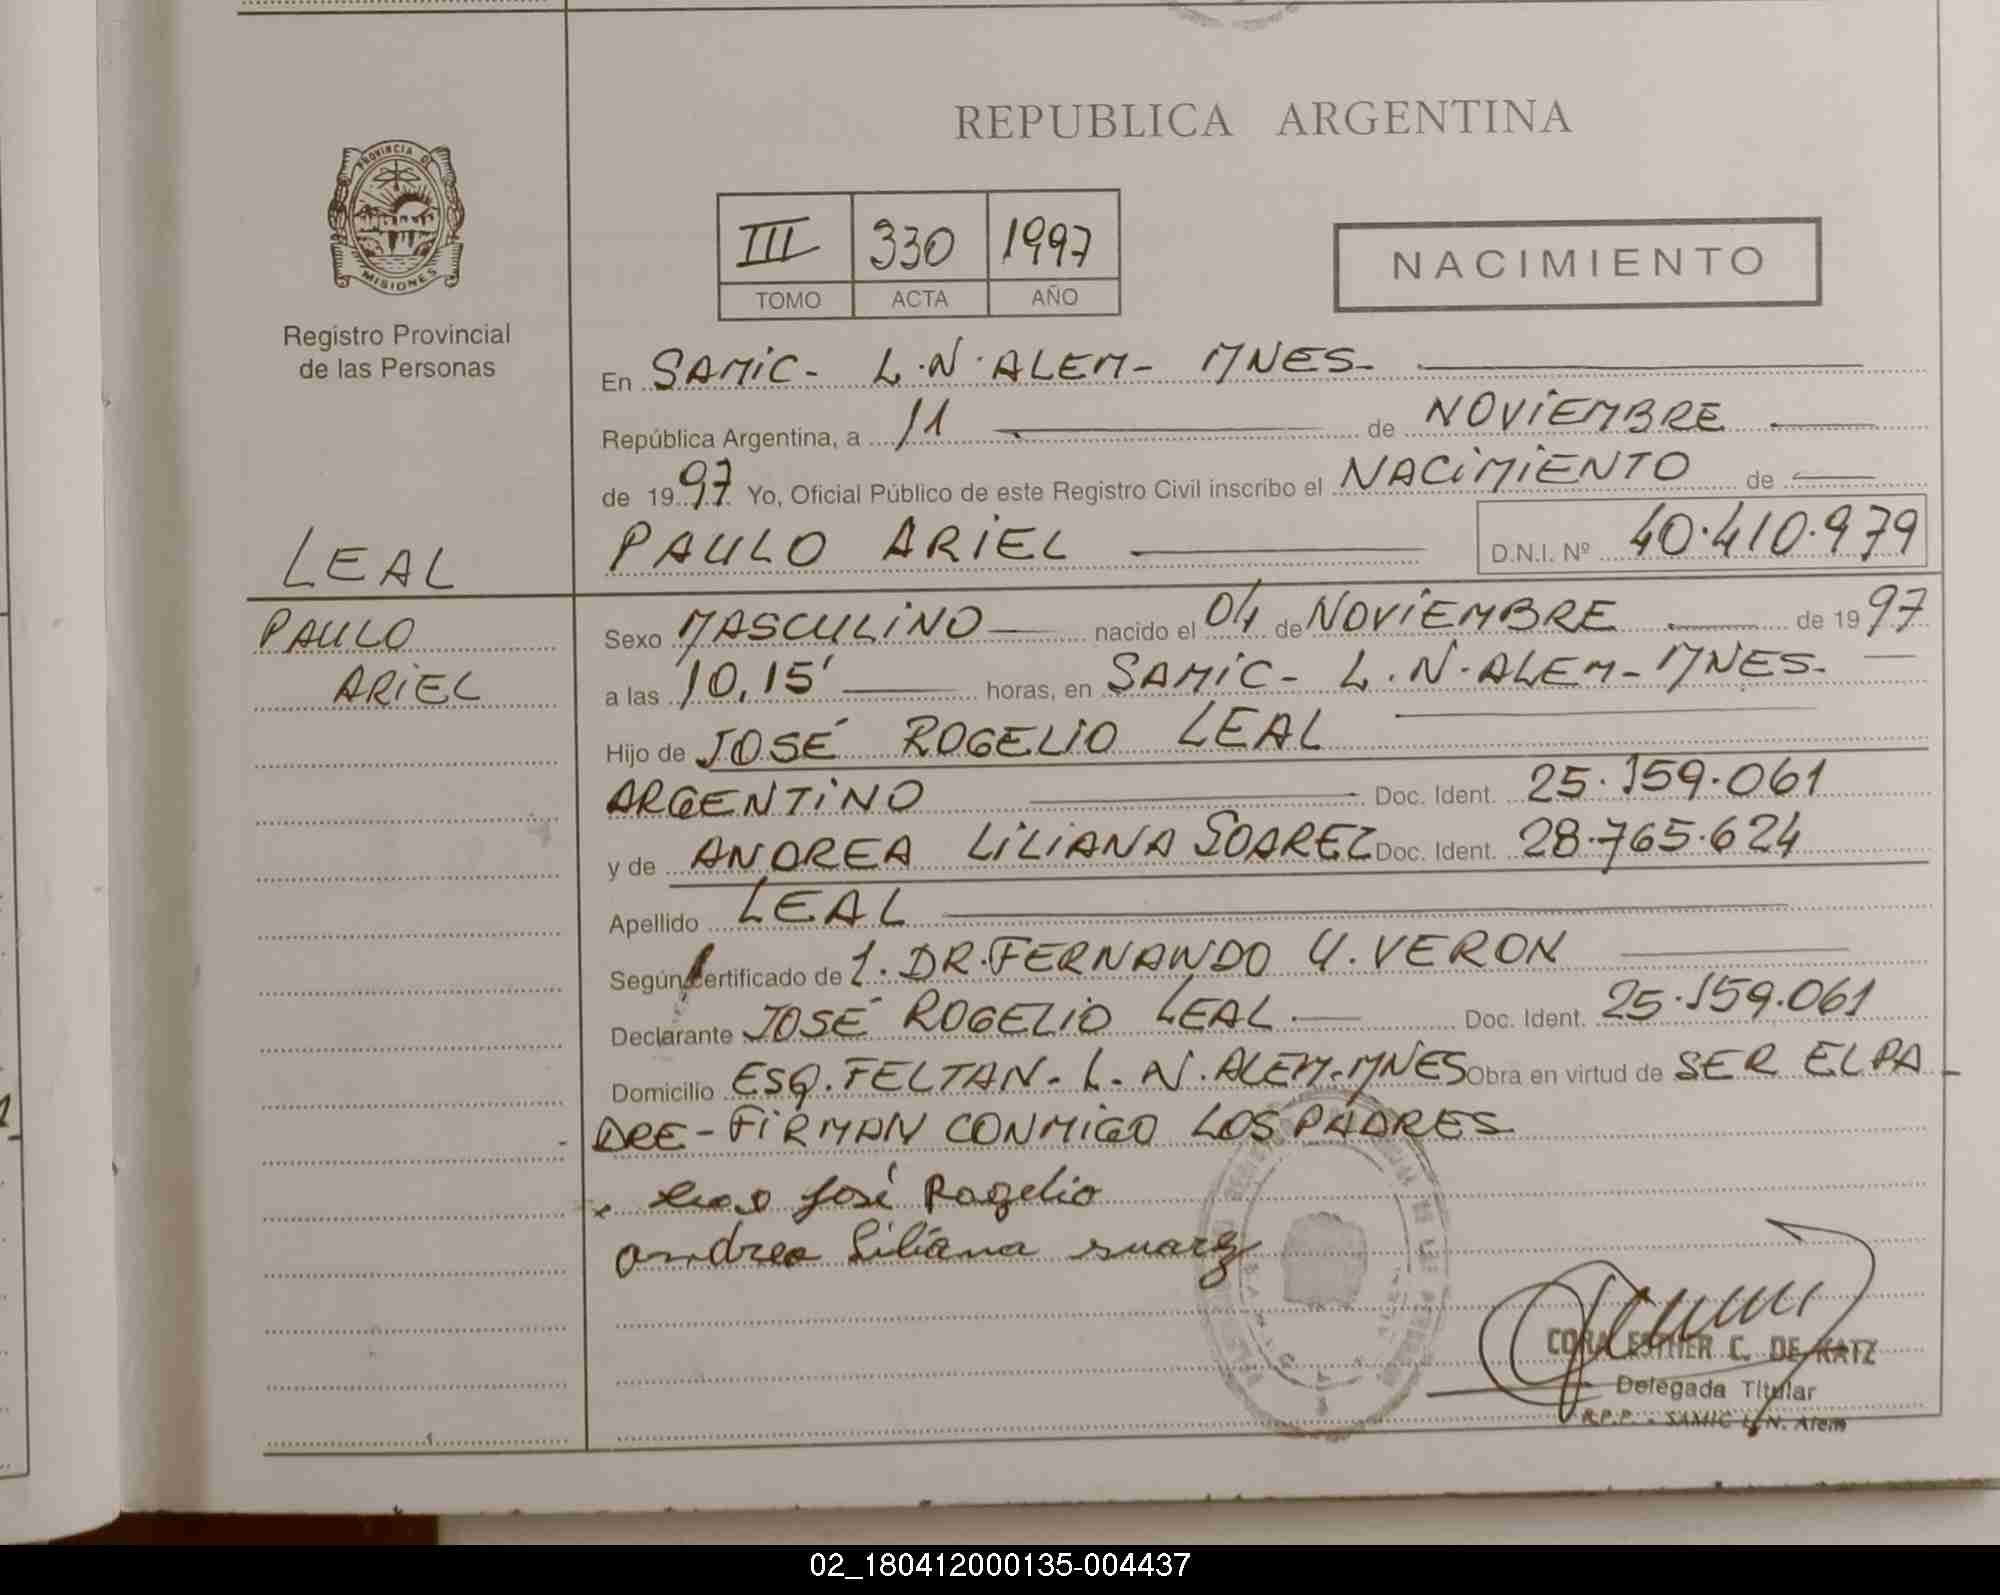 REPUBLICA ARGENTINA
PROVINCIA DE
MISIONES
Registro Provincial
de las Personas
III 330 1997
TOMO ACTA AÑO
NACIMIENTO
En SAMIC- L.N. ALEM- MNES-
República Argentina, a 11 de NOVIEMBRE
de 1997 Yo, Oficial Público de este Registro Civil inscribo el NACIMIENTO de
PAULO ARIEL D.N.I. Nº 40.410.979
LEAL
PAULO
ARIEL
Sexo MASCULINO nacido el 04 de NOVIEMBRE de 1997
a las 10,15' horas, en SAMIC- L.N. ALEM- MNES-
Hijo de JOSÉ ROGELIO LEAL
ARGENTINO Doc. Ident. 25.159.061
y de ANDREA LILIANA SOAREZ Doc. Ident. 28.765.624
Apellido LEAL
Según certificado de 1. DR. FERNANDO U. VERON
Declarante JOSÉ ROGELIO LEAL Doc. Ident. 25.159.061
Domicilio ESQ. FELTAN- L.N. ALEM- MNES Obra en virtud de SER EL PA-
DRE- FIRMAN CONMIGO LOS PADRES
Leal José Rogelio
andrea Liliana suarez
CORA ESTHER C. DE KATZ
Delegada Titular
R.P.P. - SAMIC L.N. Alem
02_180412000135-004437